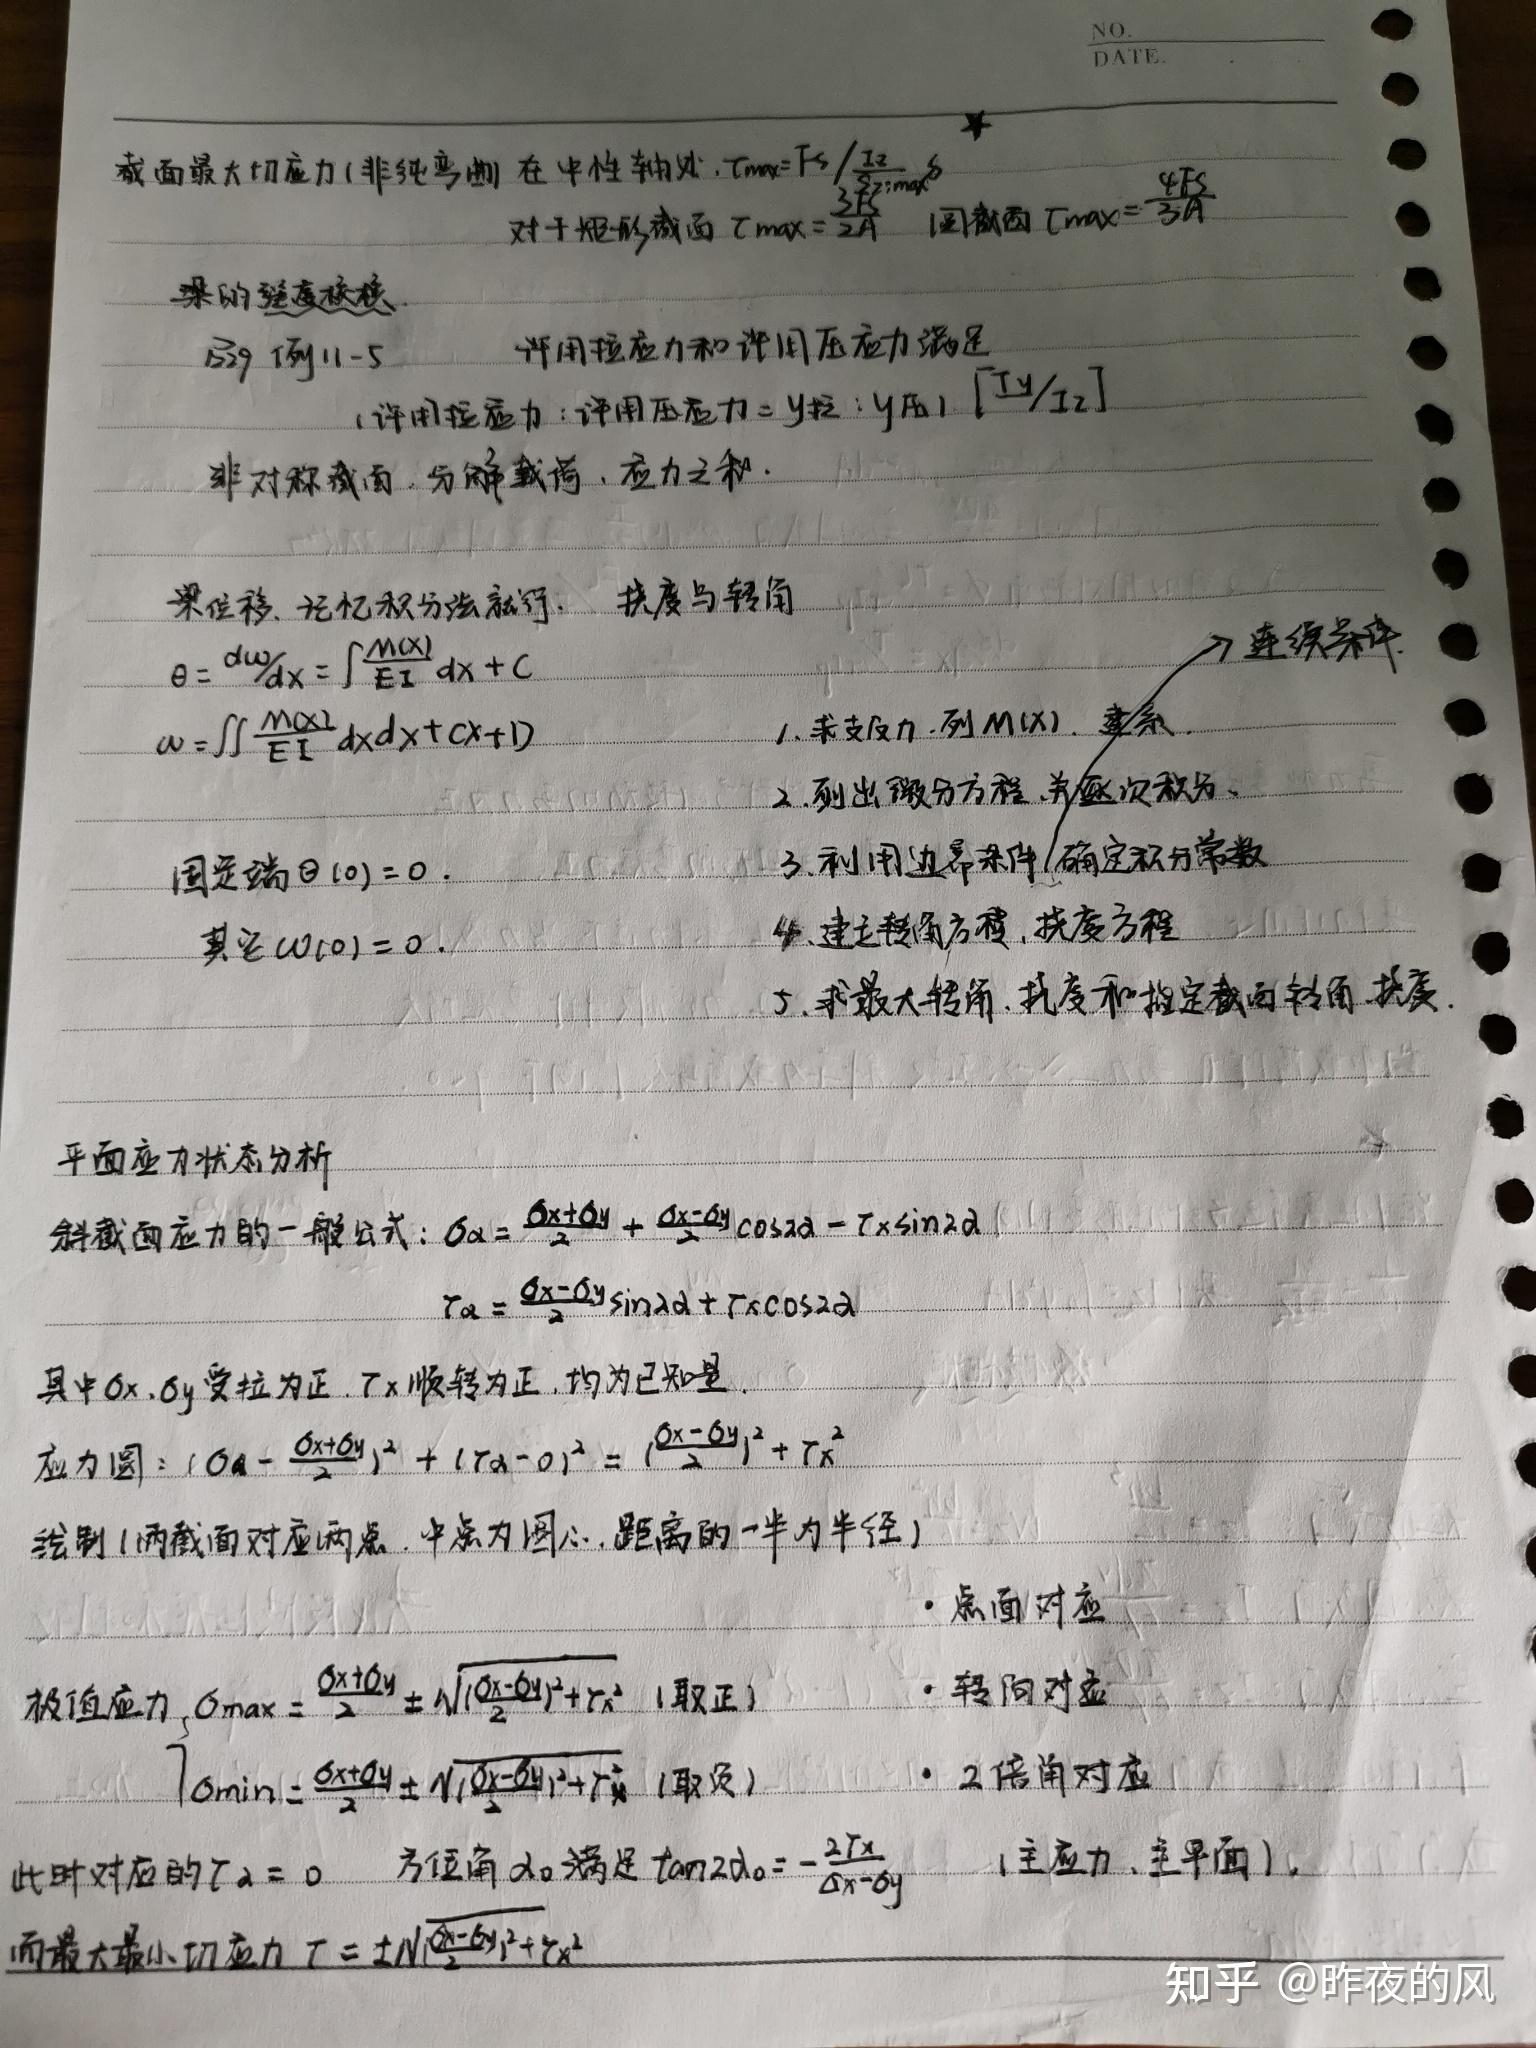 NO.
DATE.
截面最大切应力(非纯弯曲) 在中性轴处. τmax=Fs/(Iz/Sz,max)δ
对于矩形截面 τmax=3Fs/2A 圆截面 τmax=4Fs/3A
梁的强度校核.
P39 例11-5 许用拉应力和许用压应力满足
(许用拉应力:许用压应力=y拉:y压) [Iy/Iz]
非对称截面.分解载荷、应力之和.
梁位移、记忆积分法就行. 挠度与转角
θ=dω/dx=∫M(x)/EI dx+C
→连续条件.
ω=∫∫M(x)/EI dxdx+Cx+D
1.求支反力.列M(x). 建系.
2.列出微分方程并逐次积分、
固定端θ(0)=0.
3.利用边界条件/确定积分常数
其它ω(0)=0.
4.建立转角方程,挠度方程
5.求最大转角、挠度和指定截面转角 挠度.
平面应力状态分析
斜截面应力的一般公式: σα=(σx+σy)/2+(σx-σy)/2 cos2α-τxsin2α
τα=(σx-σy)/2 sin2α+τxcos2α
其中σx.σy受拉为正.τx顺转为正.均为已知量.
应力圆:(σα-(σx+σy)/2)²+(τα-0)²=((σx-σy)/2)²+τx²
绘制(两截面对应两点.中点为圆心.距离的一半为半径)
·点面对应
极值应力 σmax=(σx+σy)/2±√((σx-σy)/2)²+τx² (取正)
·转向对应
σmin=(σx+σy)/2±√((σx-σy)/2)²+τx² (取负)
·2倍角对应
此时对应的τα=0 方位角α₀满足tan2α₀=-2τx/(σx-σy) (主应力、主平面).
而最大最小切应力τ=±√((σx-σy)/2)²+τx²
知乎 @昨夜的风